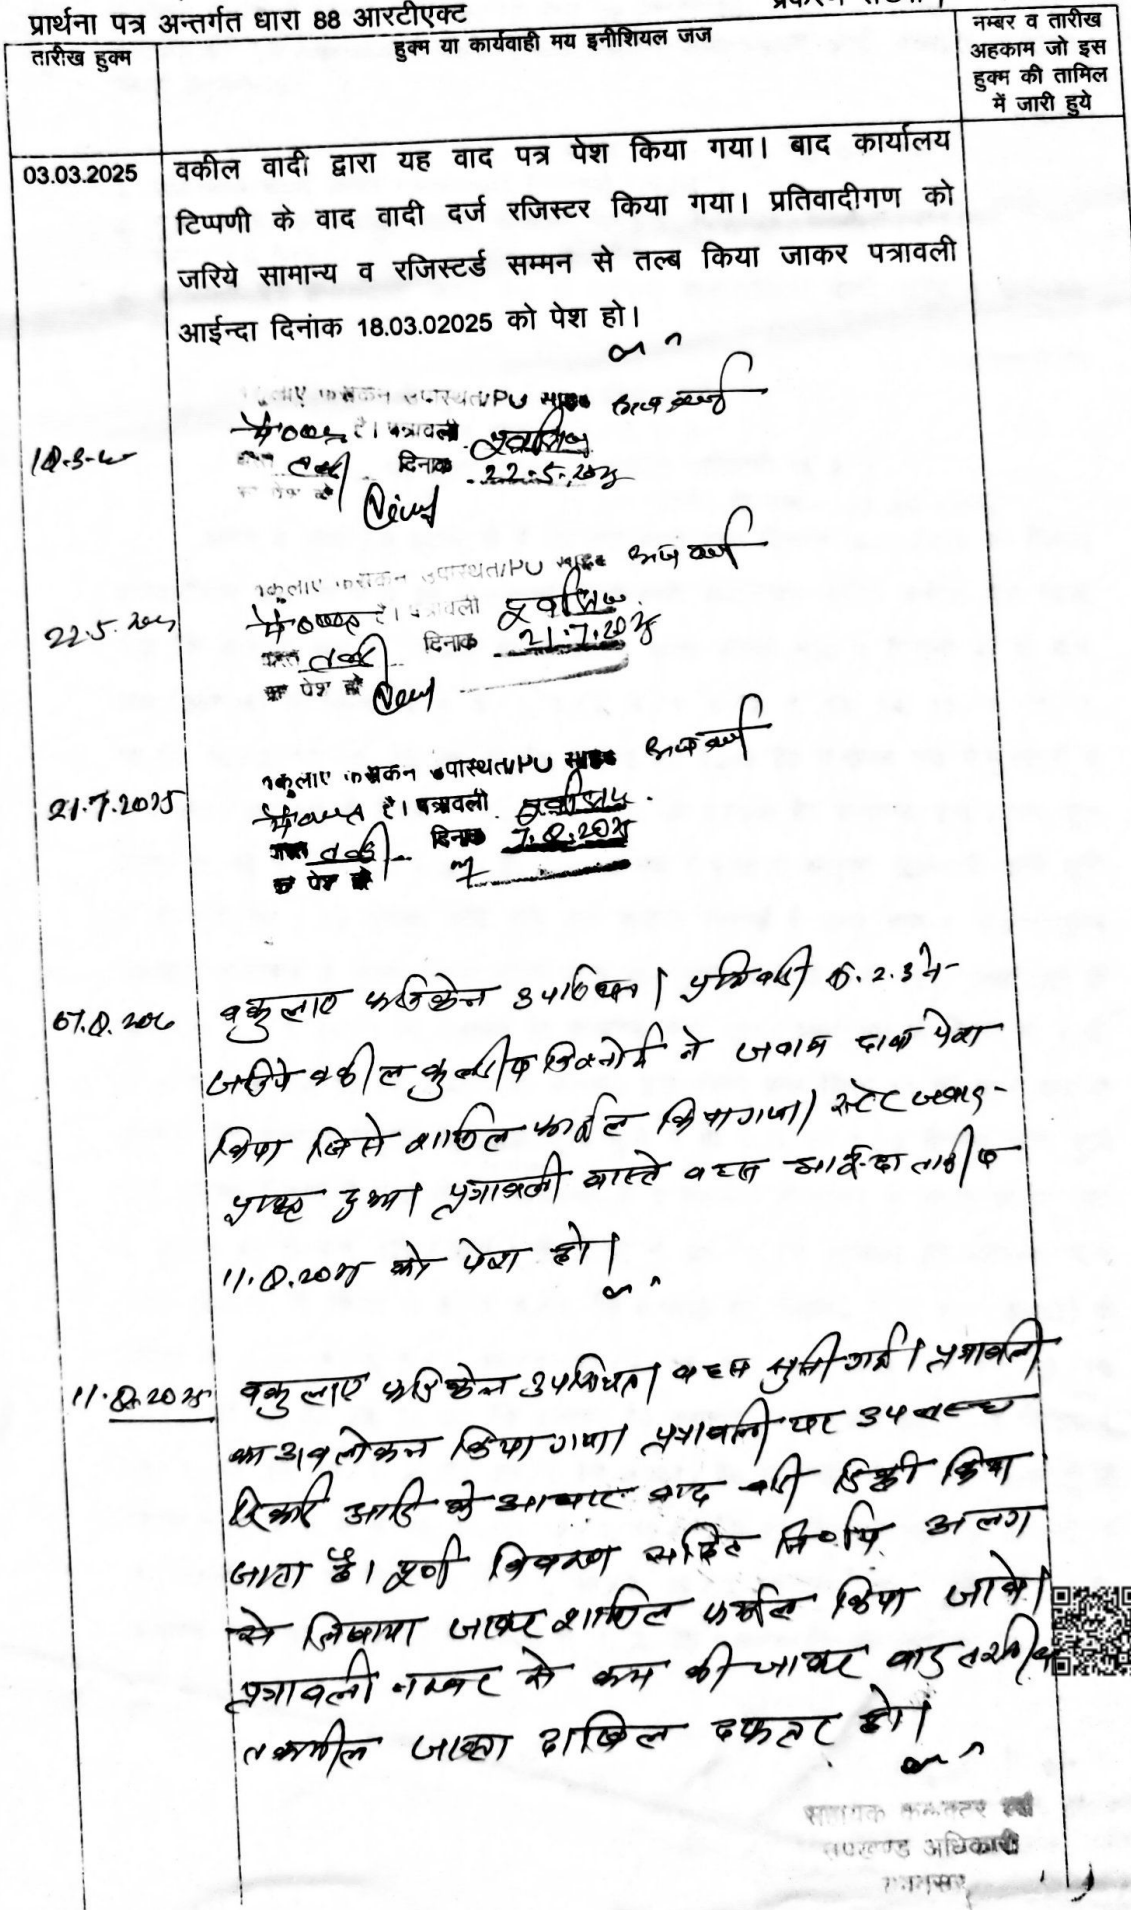 प्रार्थना पत्र अन्तर्गत धारा 88 आरटीएक्ट
तारीख हुक्म
हुक्म या कार्यवाही मय इनीशियल जज
नम्बर व तारीख
अहकाम जो इस
हुक्म की तामिल
में जारी हुये
03.03.2025
वकील वादी द्वारा यह वाद पत्र पेश किया गया। बाद कार्यालय
टिप्पणी के वाद वादी दर्ज रजिस्टर किया गया। प्रतिवादीगण को
जरिये सामान्य व रजिस्टर्ड सम्मन से तल्ब किया जाकर पत्रावली
आईन्दा दिनांक 18.03.02025 को पेश हो।
उपस्थत/PU
है। पत्रावली
दिनांक 22.5.2025
22.5.2025
उपास्थत/PU
है। पत्रावली
दिनाक 21.7.2025
पेश हो
21.7.2025
उपास्थत/PU
है। पत्रावली
दिनाक 7.8.2025
पेश हो
07.8.2025
वकुलाए फरिकेन उपस्थित। प्रतिवादी 2.3 ने
जरिये वकील कुलदीप विश्नोई ने जवाब दावा पेश
किया जिसे शामिल फाईल किया गया। स्टेट जवाब
प्राप्त हुआ। पत्रावली वास्ते बहस आईन्दा तारीख
11.8.2025 को पेश हो।
11.8.2025
वकुलाए फरिकेन उपस्थित। बहस सुनी गई। पत्रावली
का अवलोकन किया गया। पत्रावली पर उपलब्ध
रिकार्ड आदि के आधार वाद डिक्री किया
जाता है। पूर्ण विवरण सहित निर्णय अलग
से लिखाया जाकर शामिल फाईल किया जावे।
पत्रावली नम्बर से कम की जाकर बाद तरतीब
तकमील जाब्ता दाखिल दफ्तर हो।
सहायक कलक्टर एवं
उपखण्ड अधिकारी